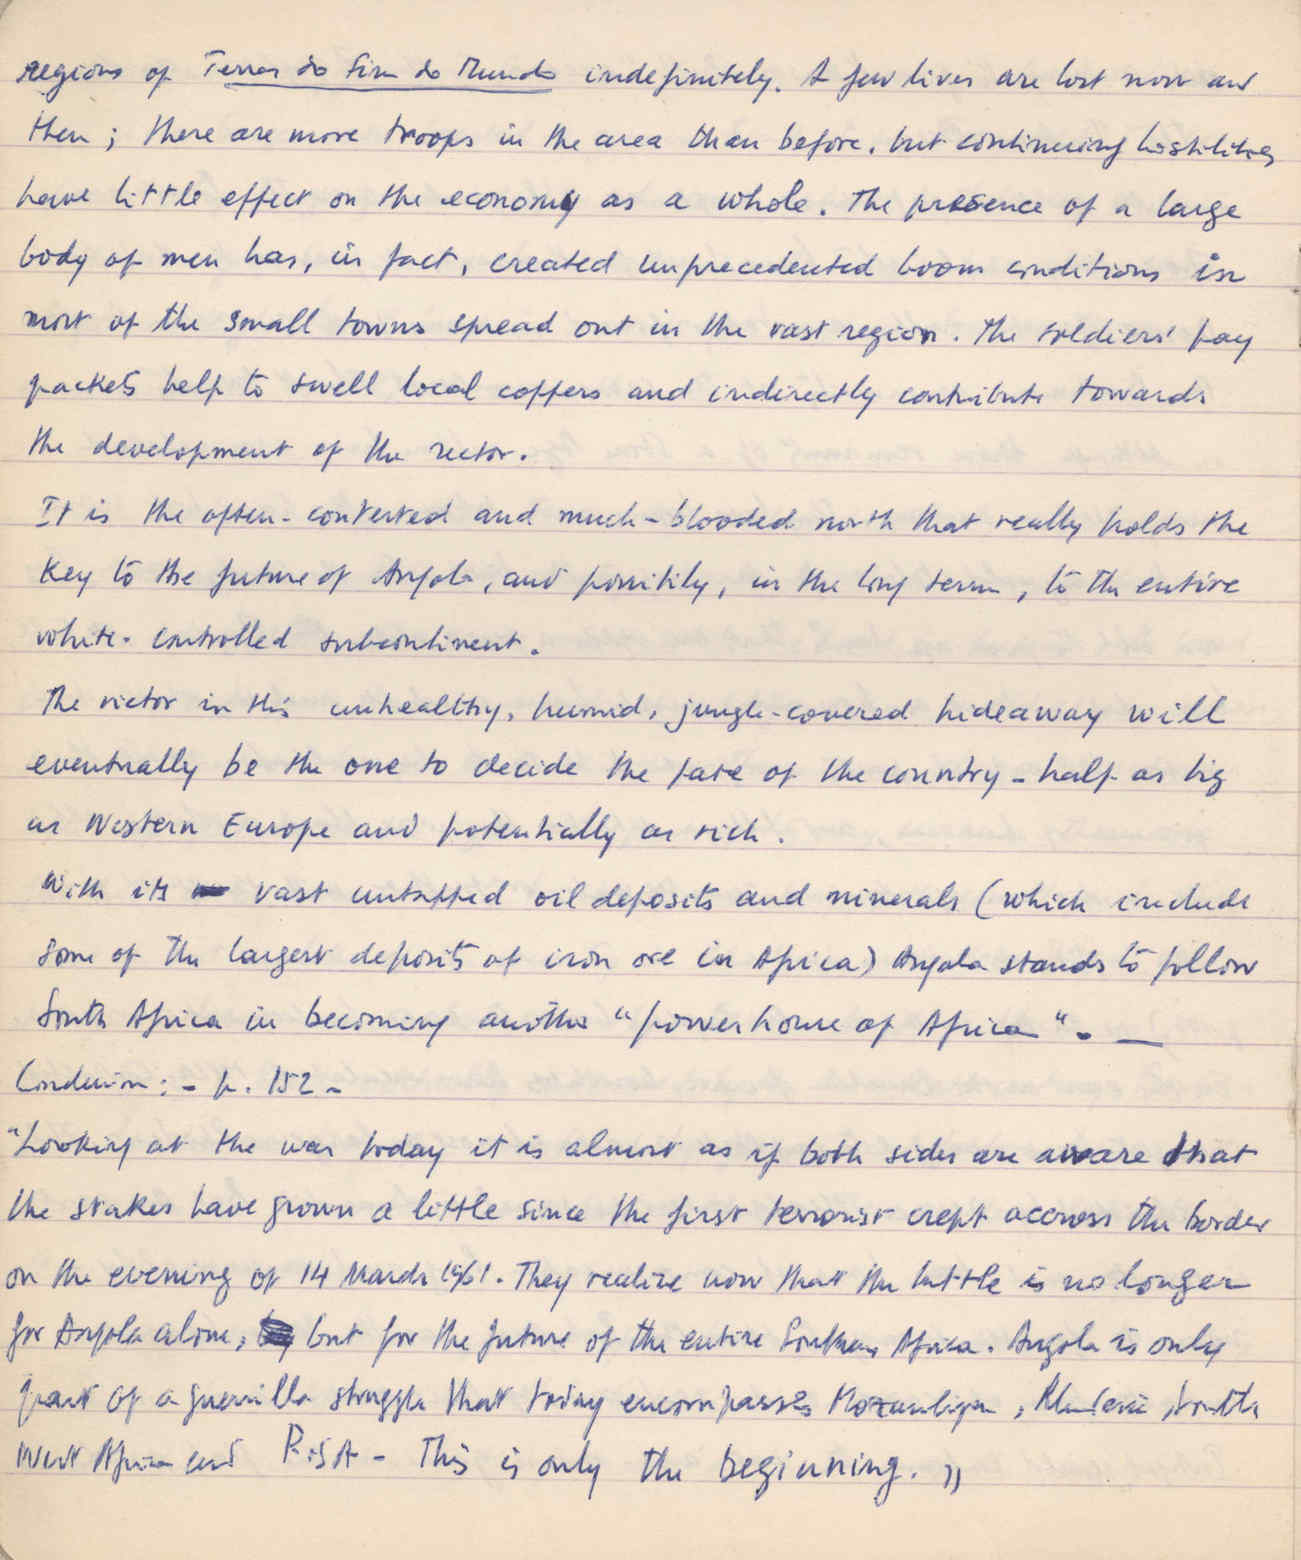 regions of Terras do Fim do Mundo indefinitely. A few lives are lost now and
then; there are more troops in the area than before. but continuing hostilities
have little effect on the economy as a whole. The presence of a large
body of men has, in fact, created unprecedented boom conditions in
most of the small towns spread out in the vast region. The soldiers' pay
packets help to swell local coffers and indirectly contribute towards
the development of the sector.
It is the often-contested and much-blooded north that really holds the
key to the future of Angola, and possibily, in the long term, to the entire
white-controlled subcontinent.
The victor in this unhealthy, humid, jungle-covered hideaway will
eventually be the one to decide the fate of the country - half as big
as Western Europe and potentially as rich.
With its vast untapped oil deposits and minerals (which include
some of the largest deposits of iron ore in Africa) Angola stands to follow
South Africa in becoming another "powerhouse of Africa". —
Conclusion: - p. 152 -
"Looking at the war today it is almost as if both sides are aware that
the stakes have grown a little since the first terrorist crept accross the border
on the evening of 14 March 1961. They realize now that the battle is no longer
for Angola alone, but for the future of the entire Southern Africa. Angola is only
part of a guerrilla struggle that today encompasses Mozambique, Rhodesia, South
West Africa and R.S.A - This is only the beginning."